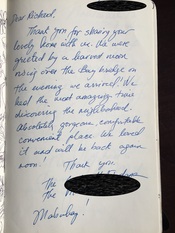 Dear Richard,
Thank you for sharing your
lovely home with us. We were
greeted by a harvest moon
rising over the Bay bridge on
the evening we arrived! We
had the most amazing time
discovering the neighborhood.
Absolutely gorgeous, comfortable
convenient place. We loved
it and will be back again
soon!
Thank you
The
The